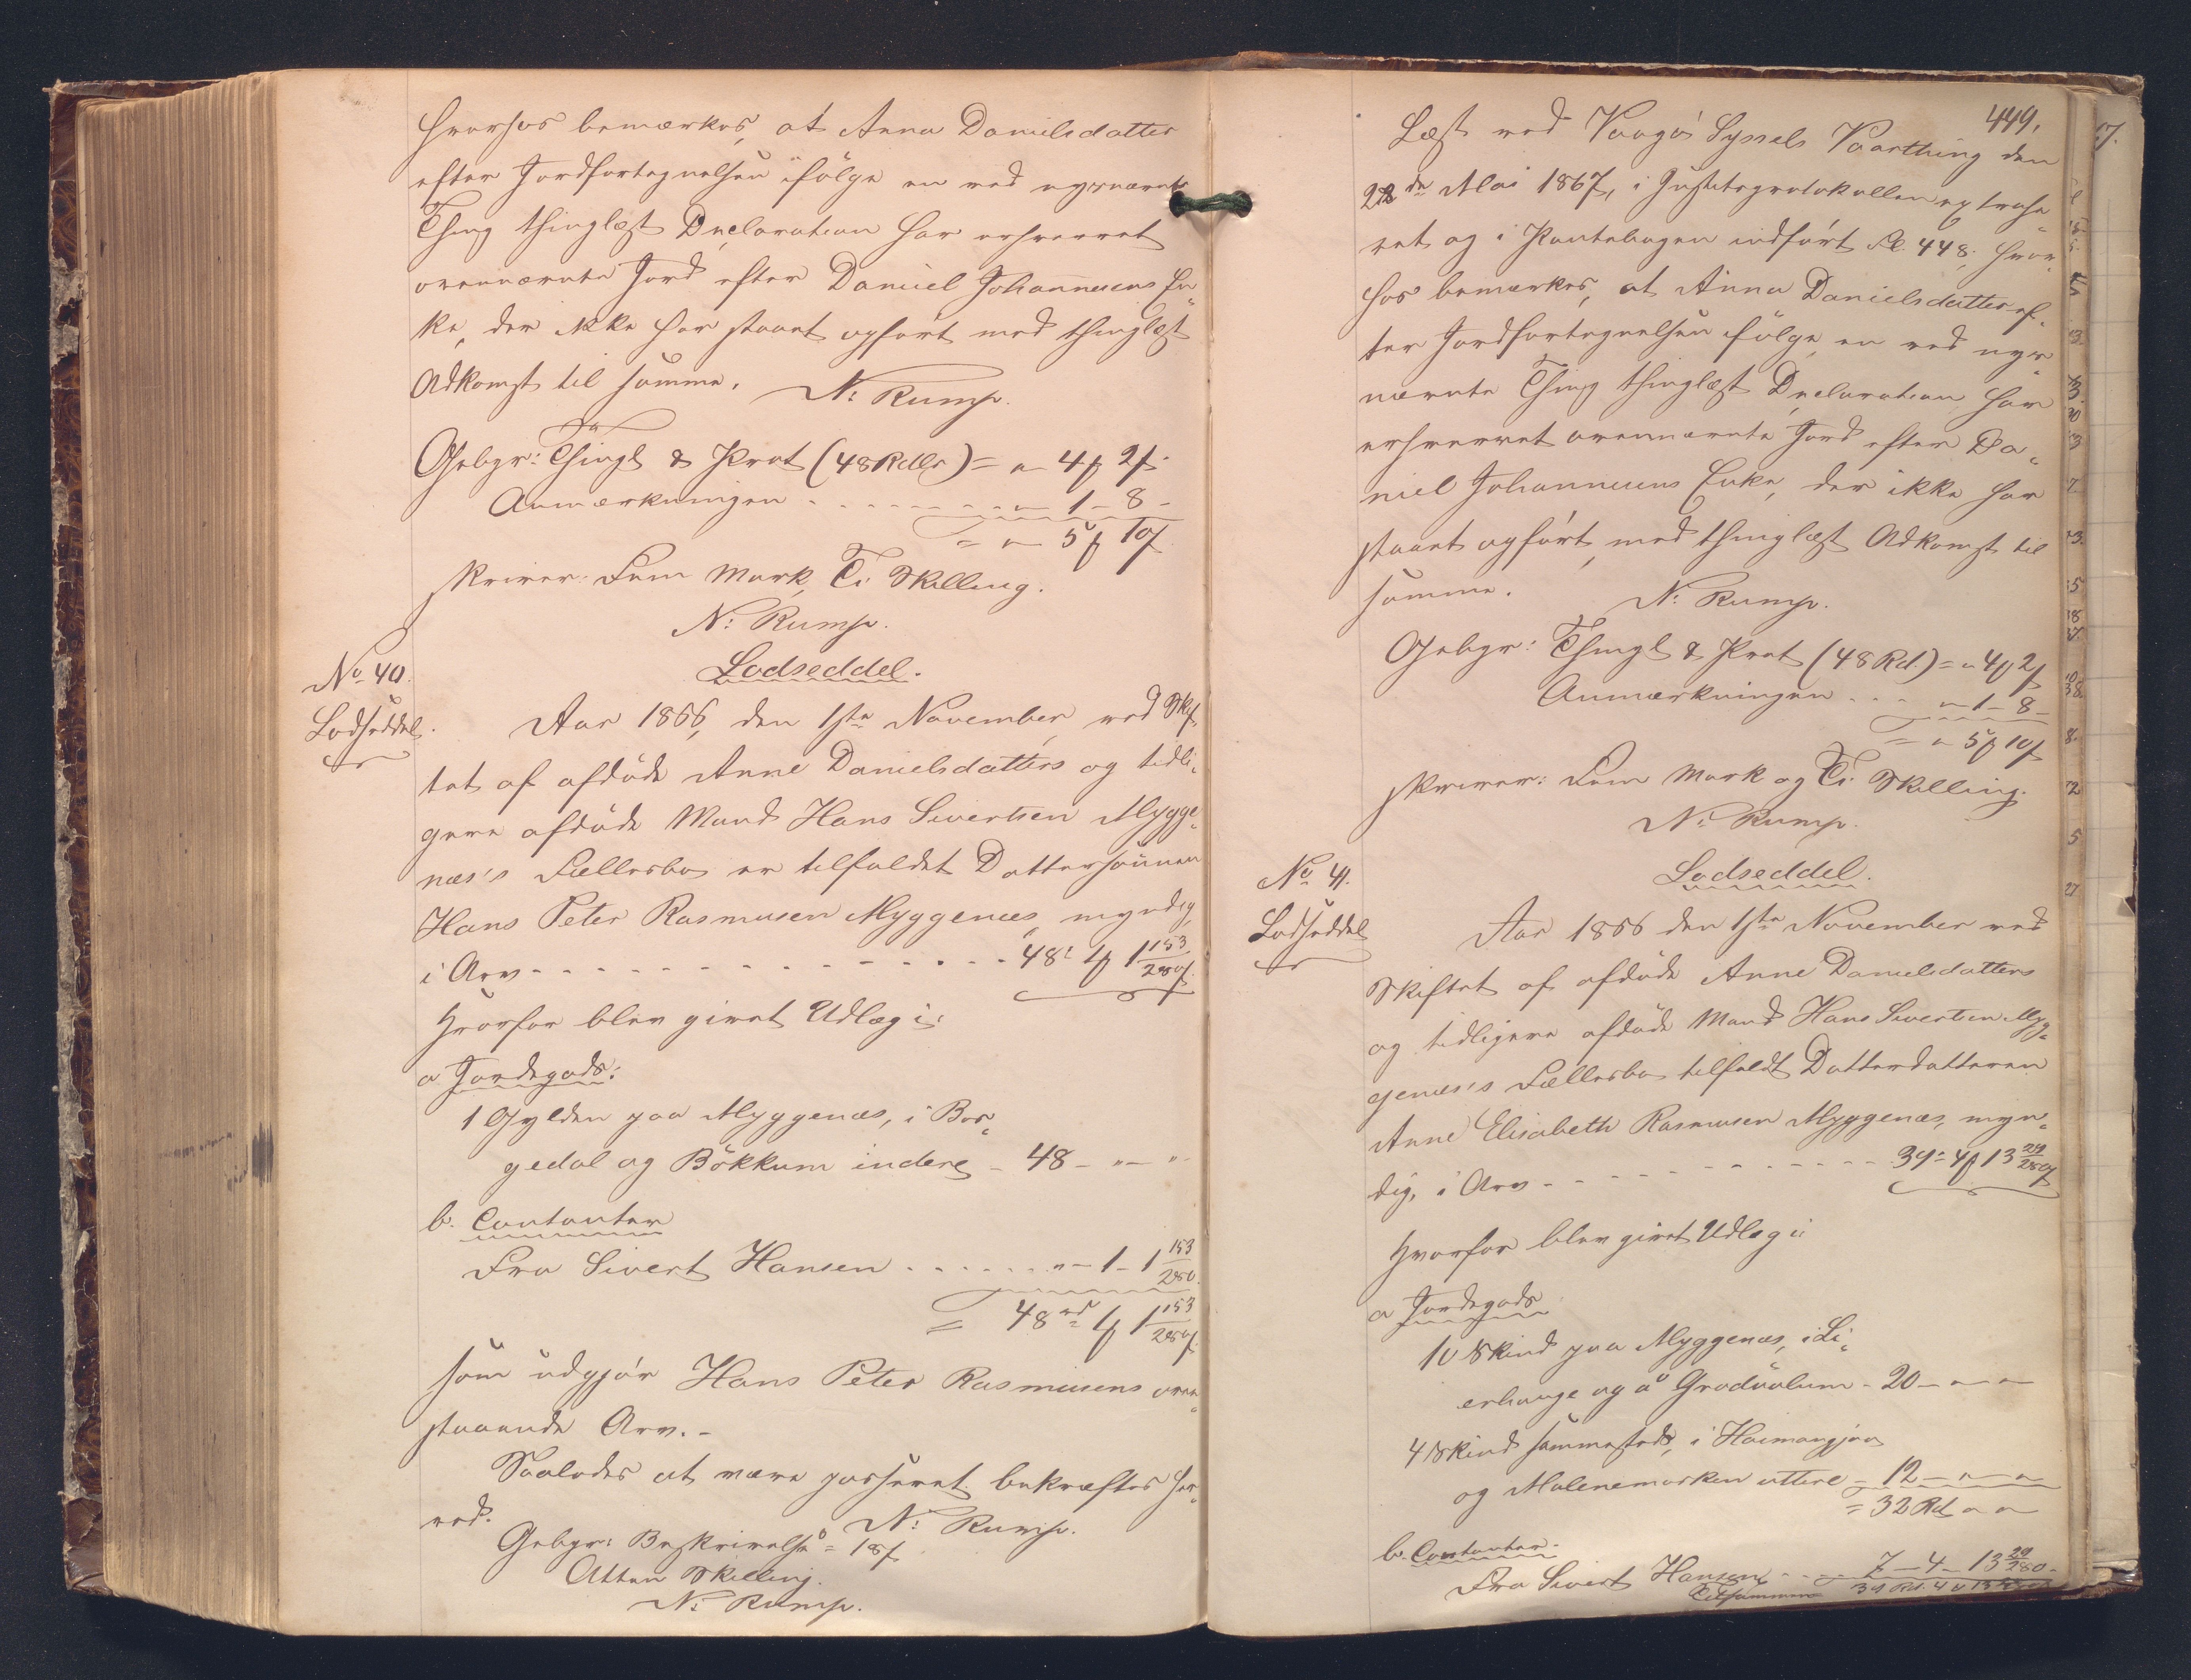 hvorhos bemærkes, at Anna Danielsdatter
efter Jordfortegnelsen ifölge en ved nysnævnte
Thing thinglæst Declaration har erhvervet
ovennævnte Jord efter Daniel Johannesens En-
ke, der ikke har staaet opfört med thinglæst
Adkomst til samme. N: Rump.
Gebyr: Thingl & Prot (48 Rdlr) = " 4 ƒ 2 ƒ.
Anmærkningen - - - - - - " 1 - 8 -
= " 5 ƒ 10 ƒ
skriver: Fem Mark, Ti Skilling.
N: Rump.
No 40.
Lodseddel.
Lodseddel.
Aar 1866, den 1ste November, ved Skif-
tet af afdöde Anne Danielsdatters og tidli-
gere afdöde Mand Hans Sivertsen Mygge-
næs's Fællesbo er tilfaldet Dattersönnen
Hans Peter Rasmusen Myggenæs, myndig,
i Arv - - - - - - - - 48: 1 ƒ 1 153/280 ƒ.
hvorfor blev givet Udlæg i:
a Jordegods:
1 Gylden paa Myggenæs, i Bor-
gedal og Bökkum indere - 48 - " - "
b. Contanter
Fra Sivert Hansen . . . . . . " - 1 - 1 153/280.
= 48 rd 1 ƒ 1 153/280 ƒ.
som udgjör Hans Peter Rasmusens oven-
staaende Arv. -
Saaledes at være passeret bekræftes her-
ved. N: Rump.
Gebyr: Beskrivelse = 18 ƒ
Atten Skilling.
N: Rump.
449.
Læst ved Vaagö Syssels Vaarthing den
22de Mai 1867, i Justitsprotokollen extrahe-
ret og i Pantebogen indfört Fol. 448; hvor-
hos bemærkes, at Anna Danielsdatter ef-
ter Jordfortegnelsen ifölge en ved nys-
nævnte Thing thinglæst Declaration har
erhvervet ovennævnte Jord efter Da-
niel Johannesens Enke, der ikke har
staaet opfört, med thinglæst Adkomst til
samme. N: Rump.
Gebyr: Thingl & Prot (48 Rd.) = " 4 ƒ 2 ƒ
Anmærkningen . . . " - 1 - 8 -
= " 5 ƒ 10 ƒ
skriver: Fem Mark og Ti Skilling.
N: Rump.
No 41.
Lodseddel
Lodseddel.
Aar 1866 den 1ste November ved
Skiftet af afdöde Anne Danielsdatters
og tidligere afdöde Mand Hans Sivertsen Myg-
genæs's Fællesbo tilfaldt Datterdatteren
Anne Elisabeth Rasmusen Myggenæs, myn-
dig, i Arv - - - - - - - - 39: 4 ƒ 13 29/280 ƒ
hvorfor blev givet Udlæg i:
a Jordegods
10 Skind paa Myggenæs, i Li-
erhauge og á Gradúalum - 20 - " - "
4 Skind sammesteds, i Haimangjaa
og Malenemarken uttere - 12 - " - "
= 32 Rd " "
b. Contanter.
Fra Sivert Hansen - - - 7 - 4 - 13 29/280.
Tilsammen 39 Rd. 4 ƒ 13 29/280 ƒ